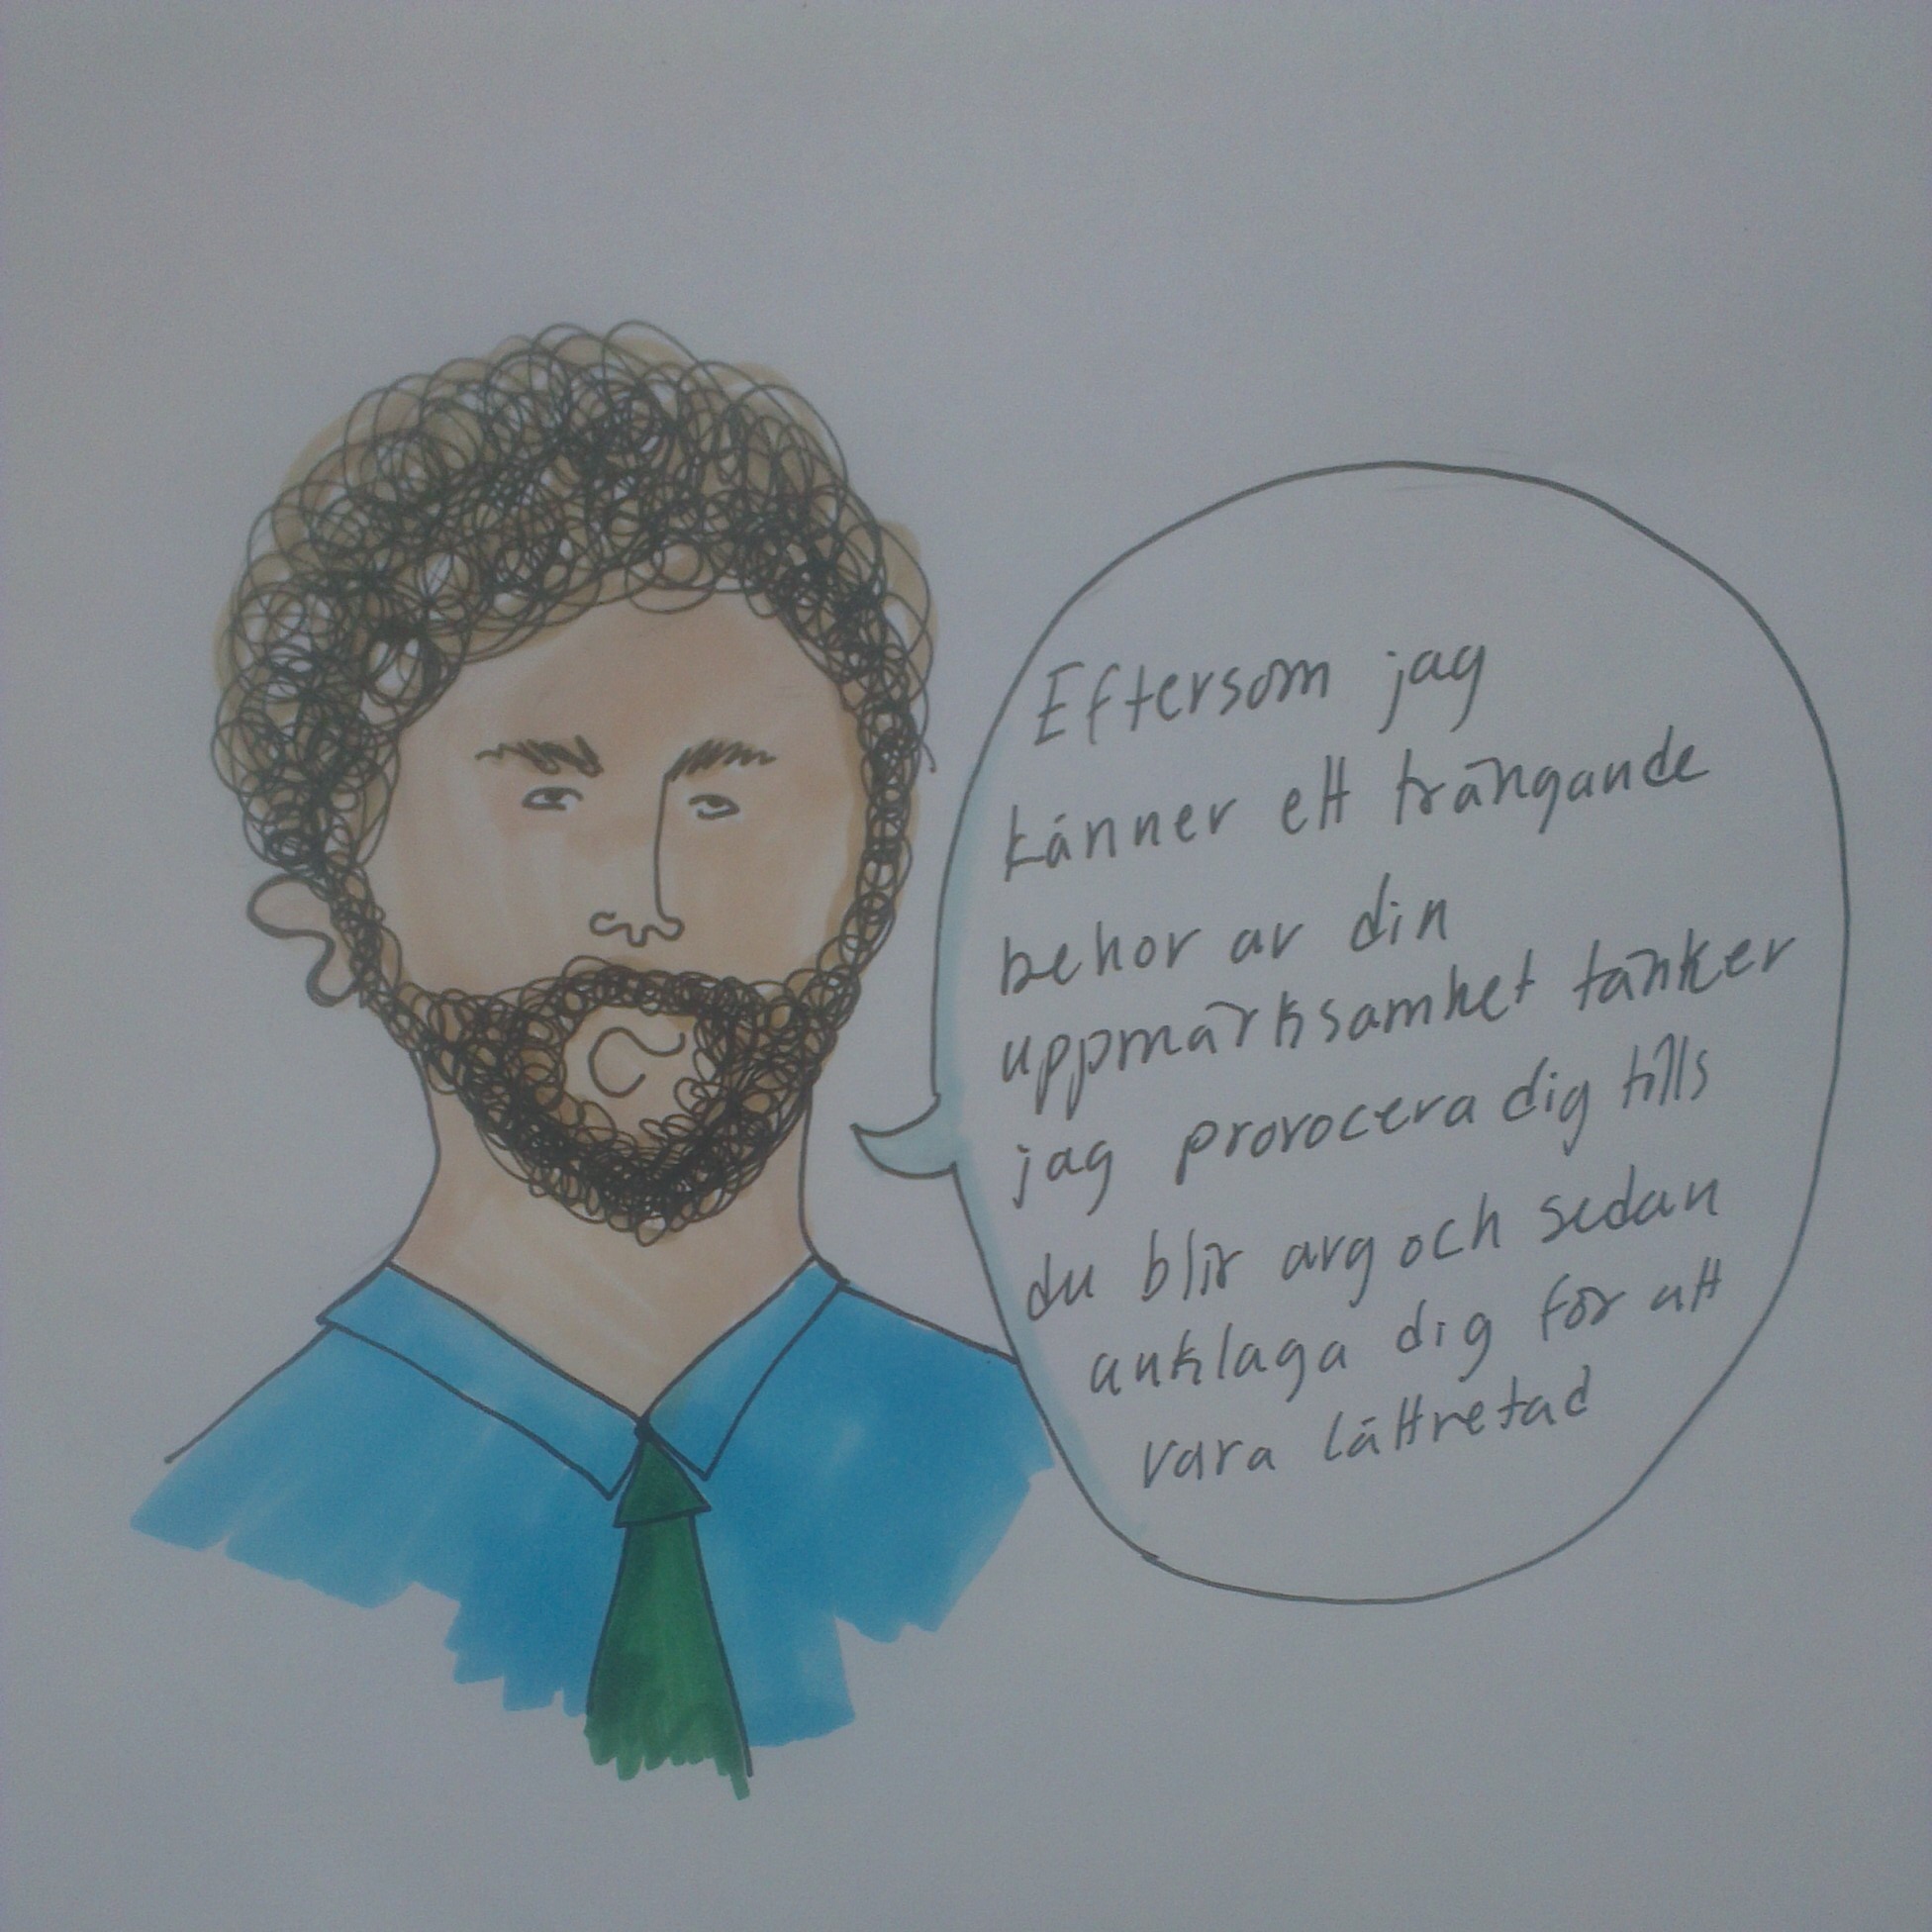 Eftersom jag
känner ett trängande
behov av din
uppmärksamhet tänker
jag provocera dig tills
du blir arg och sedan
anklaga dig för att
vara lättretad